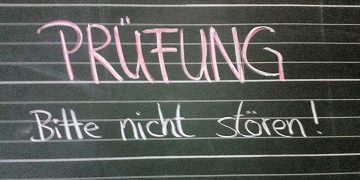 PRÜFUNG
Bitte nicht stören!